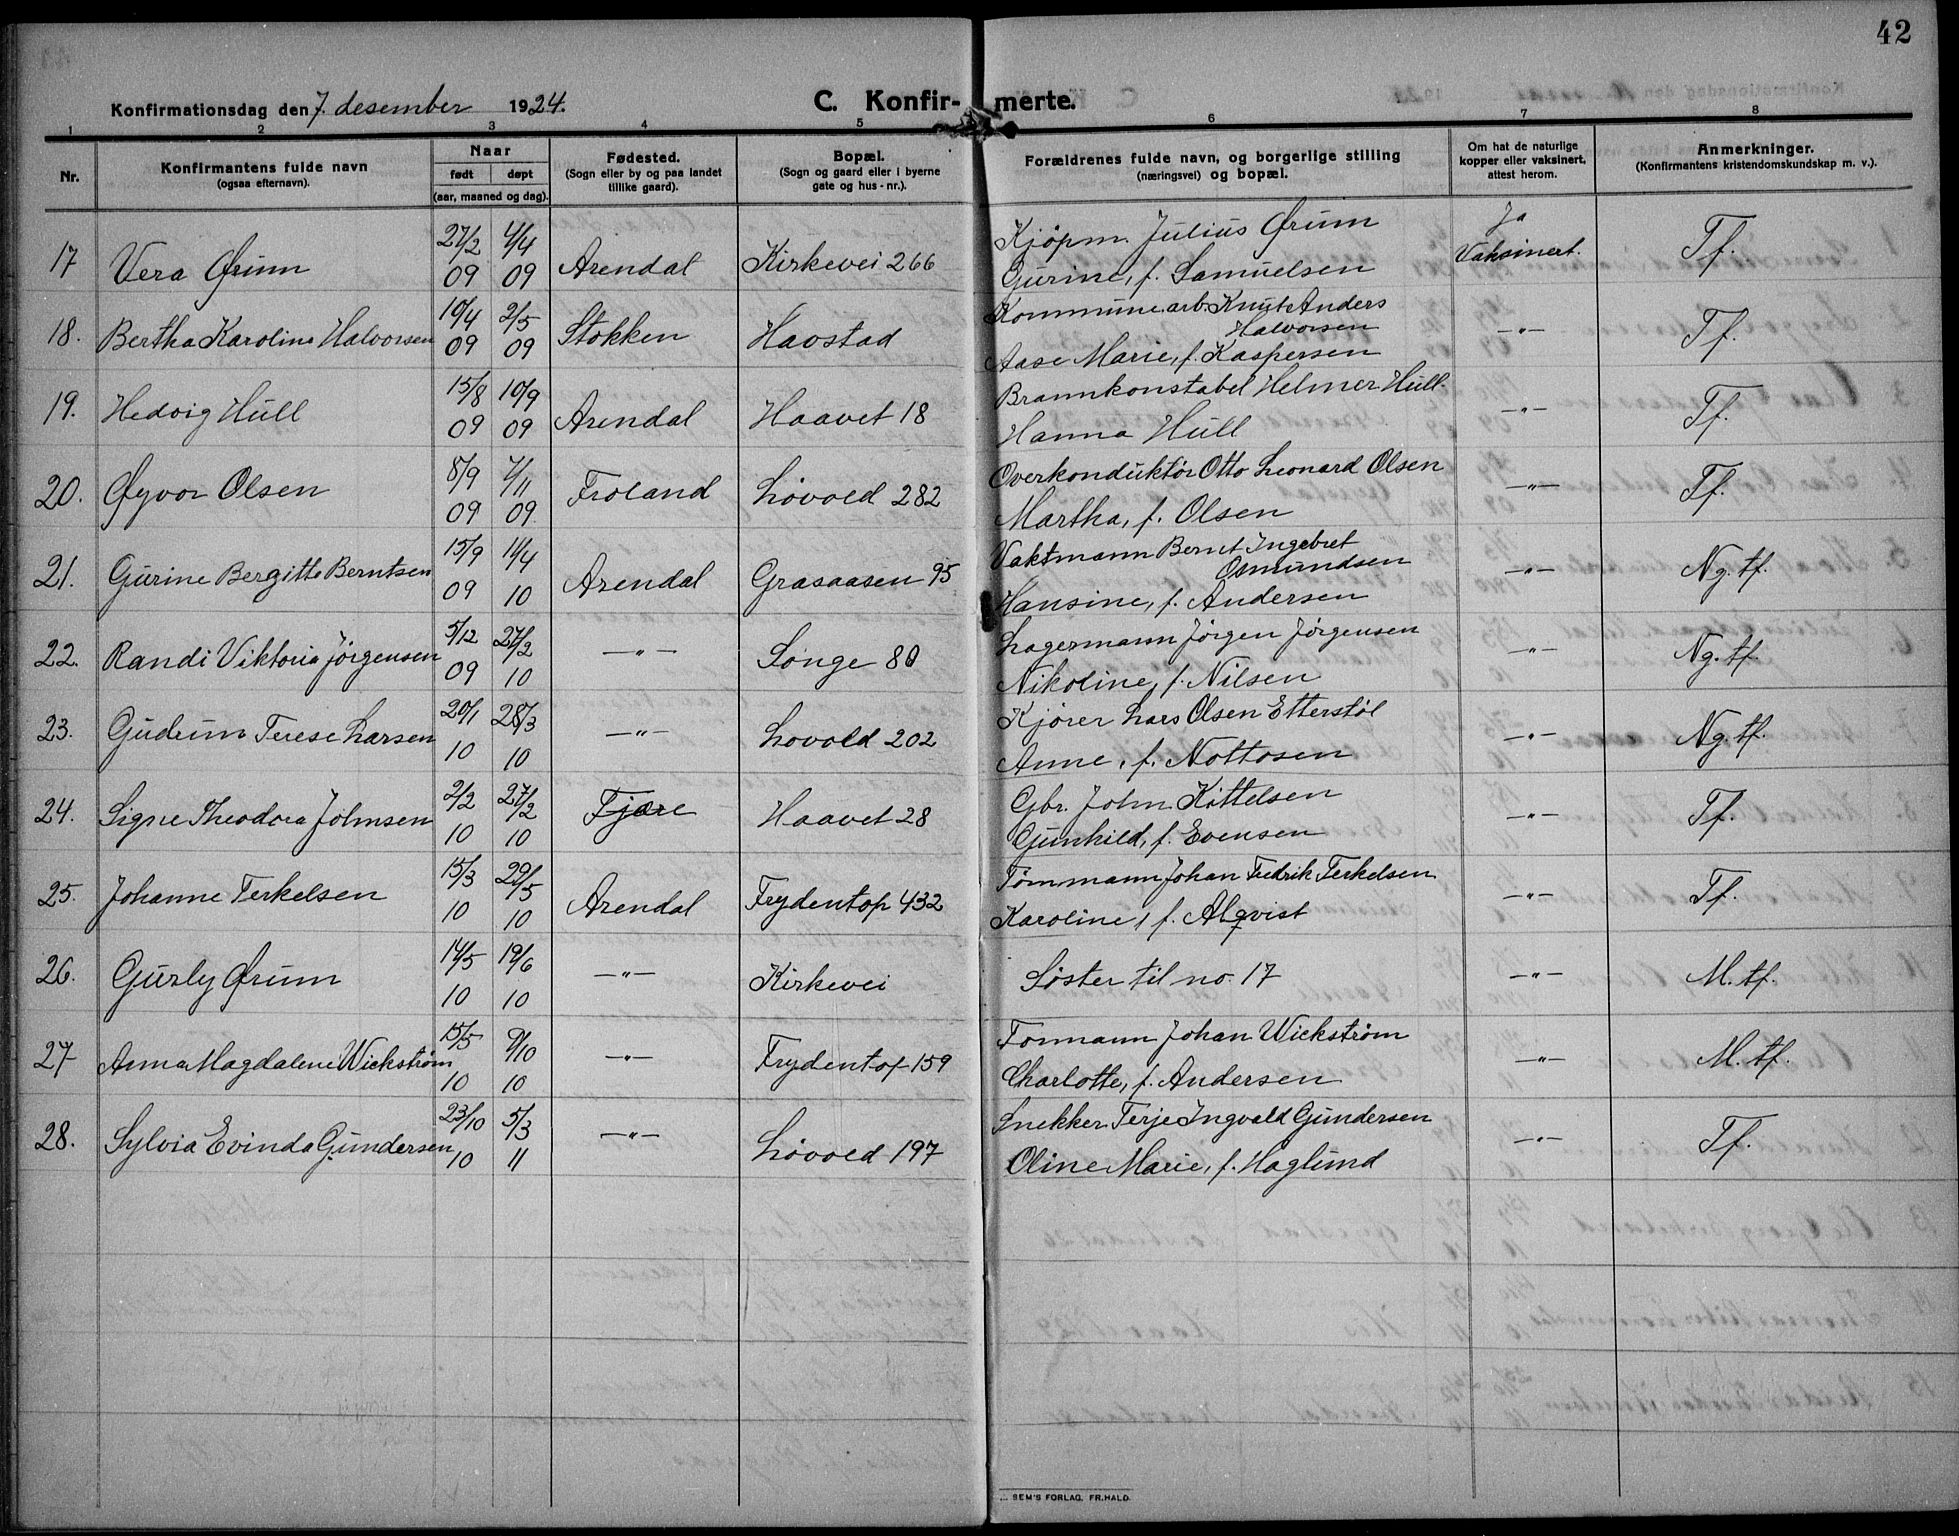 42
Konfirmationsdag den 7. desember 1924. C. Konfirmerte.
1 2 3 4 5 6 7 8
Nr. Konfirmantens fulde navn (ogsaa efternavn). Naar født døpt (aar, maaned og dag). Fødested. (Sogn eller by og paa landet tillike gaard). Bopæl. (Sogn og gaard eller i byerne gate og hus-nr.). Forældrenes fulde navn, og borgerlige stilling (næringsvei) og bopæl. Om hat de naturlige kopper eller vaksinert, attest herom. Anmerkninger. (Konfirmantens kristendomskundskap m. v.).
17 Vera Ørum 27/2 09 4/4 09 Arendal Kirkevei 266 Kjøpm. Julius Ørum Ja Vaksinert. Tf.
Gurine, f. Samuelsen
18. Bertha Karoline Halvorsen 10/4 09 2/5 09 Stokken Havstad Kommunearb. Knut Anders Halvorsen —"— Tf.
Aase Marie, f. Kaspersen
19. Hedvig Hull 15/8 09 10/9 09 Arendal Haavet 18 Brannkonstabel Helmer Hull. —"— Tf.
Hanna Hull
20. Øyvor Olsen 8/9 09 7/11 09 Froland Løvold 282 Overkonduktør Otto Leonard Olsen —"— Tf.
Martha, f. Olsen
21. Gurine Bergitte Berntsen 15/9 09 11/4 10 Arendal Grasaasen 95 Vaktmann Bernt Ingebret Osmundsen —"— Ng. tf.
Hansine, f. Andersen
22. Randi Viktoria Jörgensen 5/12 09 27/2 10 —"— Songe 80 Lagermann Jørgen Jørgensen —"— Ng. tf.
Nikoline, f. Nilsen
23. Gudrun Terese Larsen 20/1 10 28/3 10 —"— Løvold 202 Kjører Lars Olsen Etterstøl —"— Ng. tf.
Anne, f. Nottosen
24. Signe Theodora Johnsen 2/2 10 27/2 10 Fjære Haavet 28 Gbr. John Kittelsen —"— Tf.
Gunhild, f. Evensen
25. Johanne Terkelsen 15/3 10 29/5 10 Arendal Frydentop 432 Tømmann Johan Fredrik Terkelsen —"— Tf.
Karoline, f. Alqvist
26. Gurly Ørum 14/5 10 19/6 10 —"— Kirkevei Søster til no. 17 —"— M. tf.
27 Anna Magdalene Wickstrøm 15/5 10 9/10 10 —"— Frydentop 159 Formann Johan Wickstrøm —"— M. tf.
Charlotte, f. Andersen
28. Sylvia Evinda Gundersen 23/10 10 5/3 11 —"— Løvold 197 Snekker Terje Ingvald Gundersen —"— Tf.
Oline Marie, f. Haglund
SEM'S FORLAG, FR.HALD.